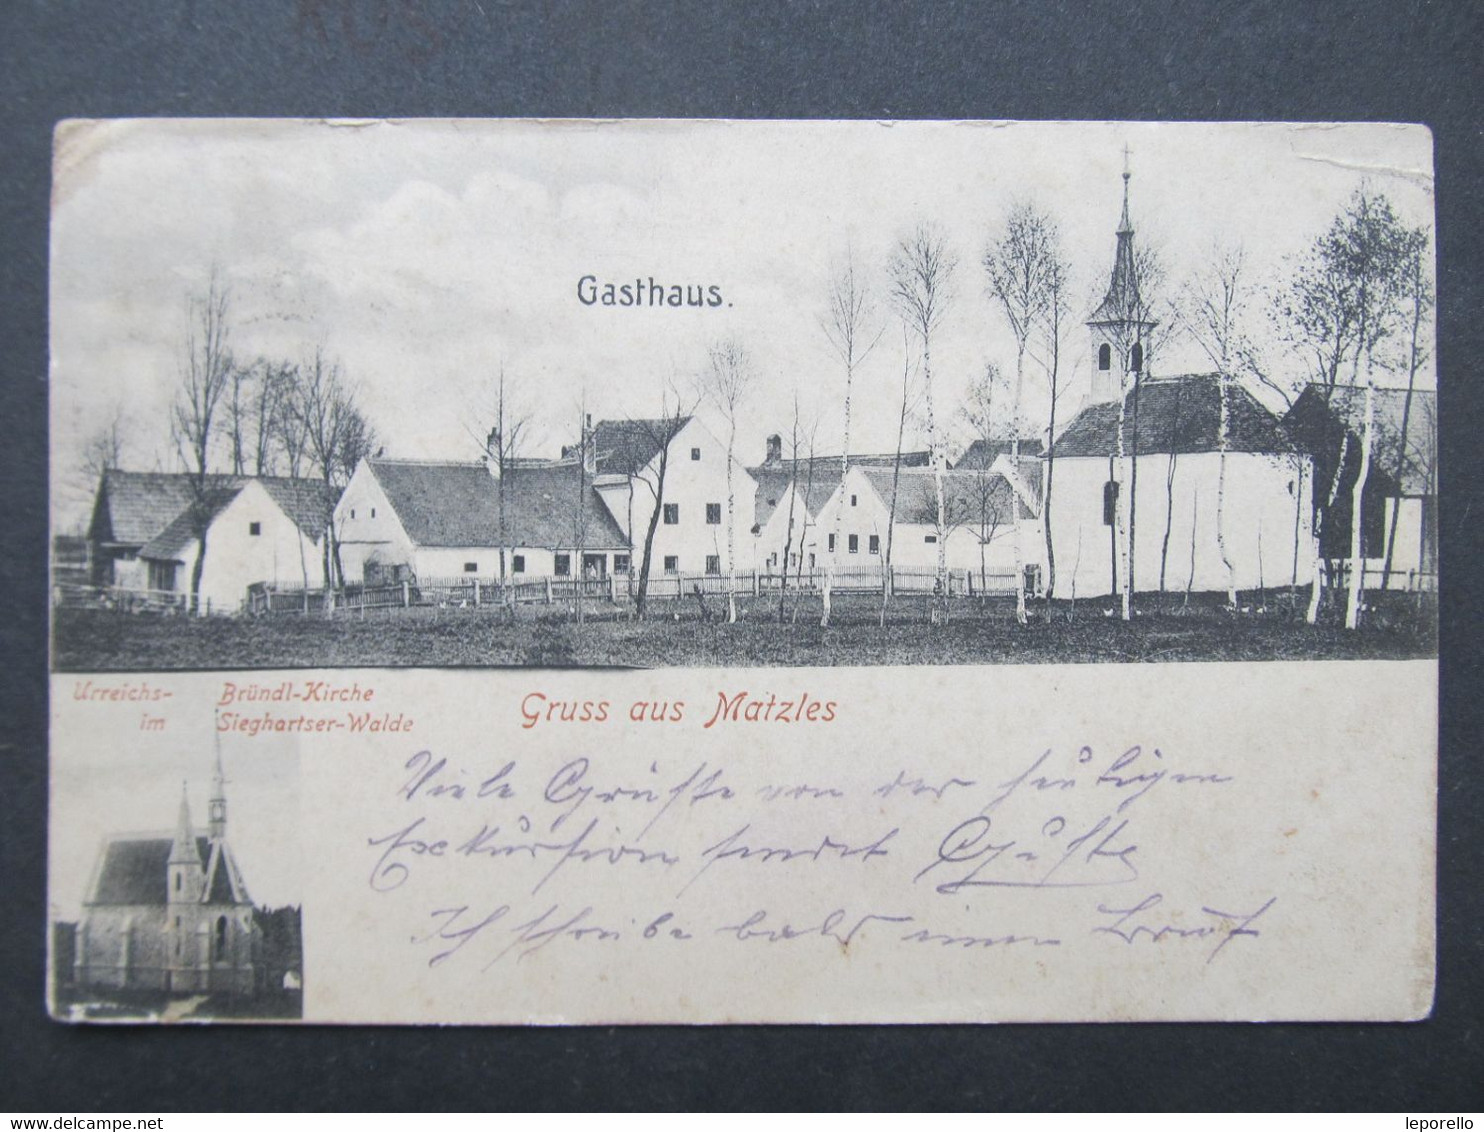 Gasthaus.
Urreichs- Bründl-Kirche
im Sieghartser-Walde
Gruss aus Matzles
Viele Grüsse von der heutigen
Exkursion sendet Guste
Ich schreibe bald einen Brief
delcampe.net
leporello